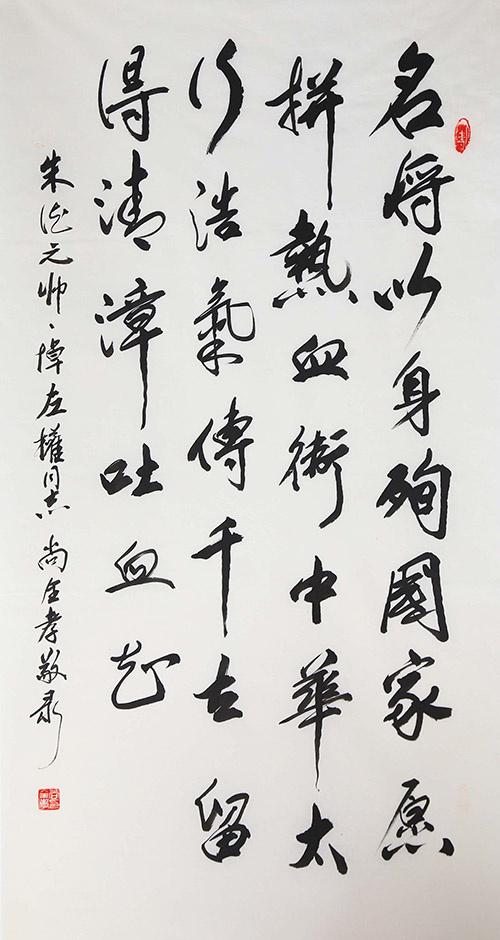 名将以身殉國家愿
拼熱血衛中華太
行浩氣傳千古留
得清漳吐血花
朱德元帅、悼左權同志 尚金孝敬录